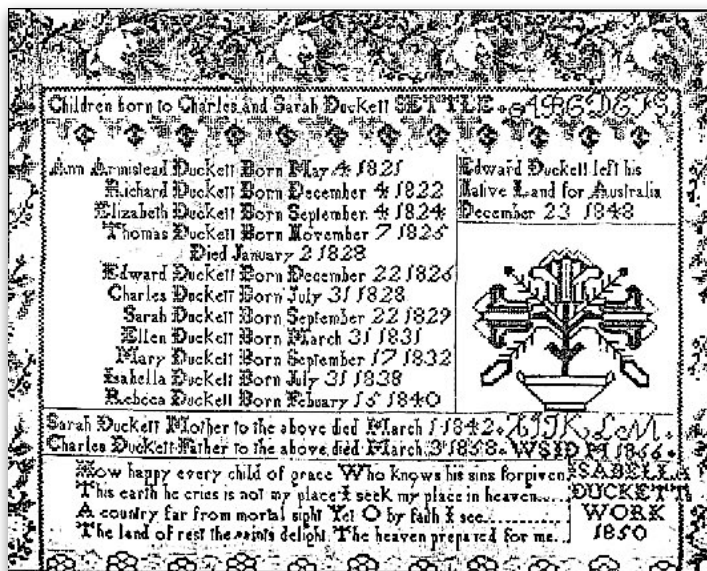 Children born to Charles and Sarah Duckett SETTLE
Ann Armistead Duckett Born May 4 1821
Richard Duckett Born December 4 1822
Elizabeth Duckett Born September 4 1824
Thomas Duckett Born November 7 1825
Died January 2 1828
Edward Duckett Born December 22 1826
Charles Duckett Born July 31 1828
Sarah Duckett Born September 22 1829
Ellen Duckett Born March 31 1831
Mary Duckett Born September 17 1832
Isabella Duckett Born July 31 1838
Rebcca Duckett Born Febuary 15 1840
Edward Duckett left his
Native Land for Australia
December 23 1848
Sarah Duckett Mother to the above died March 1 1842
Charles Duckett Father to the above died March 3 1858
How happy every child of grace Who knows his sins forgiven
This earth he cries is not my place I seek my place in heaven....
A country far from mortal sight Yet O by faith I see..........
The land of rest the saints delight The heaven prepared for me...
ISABELLA
DUCKETTS
WORK
1850